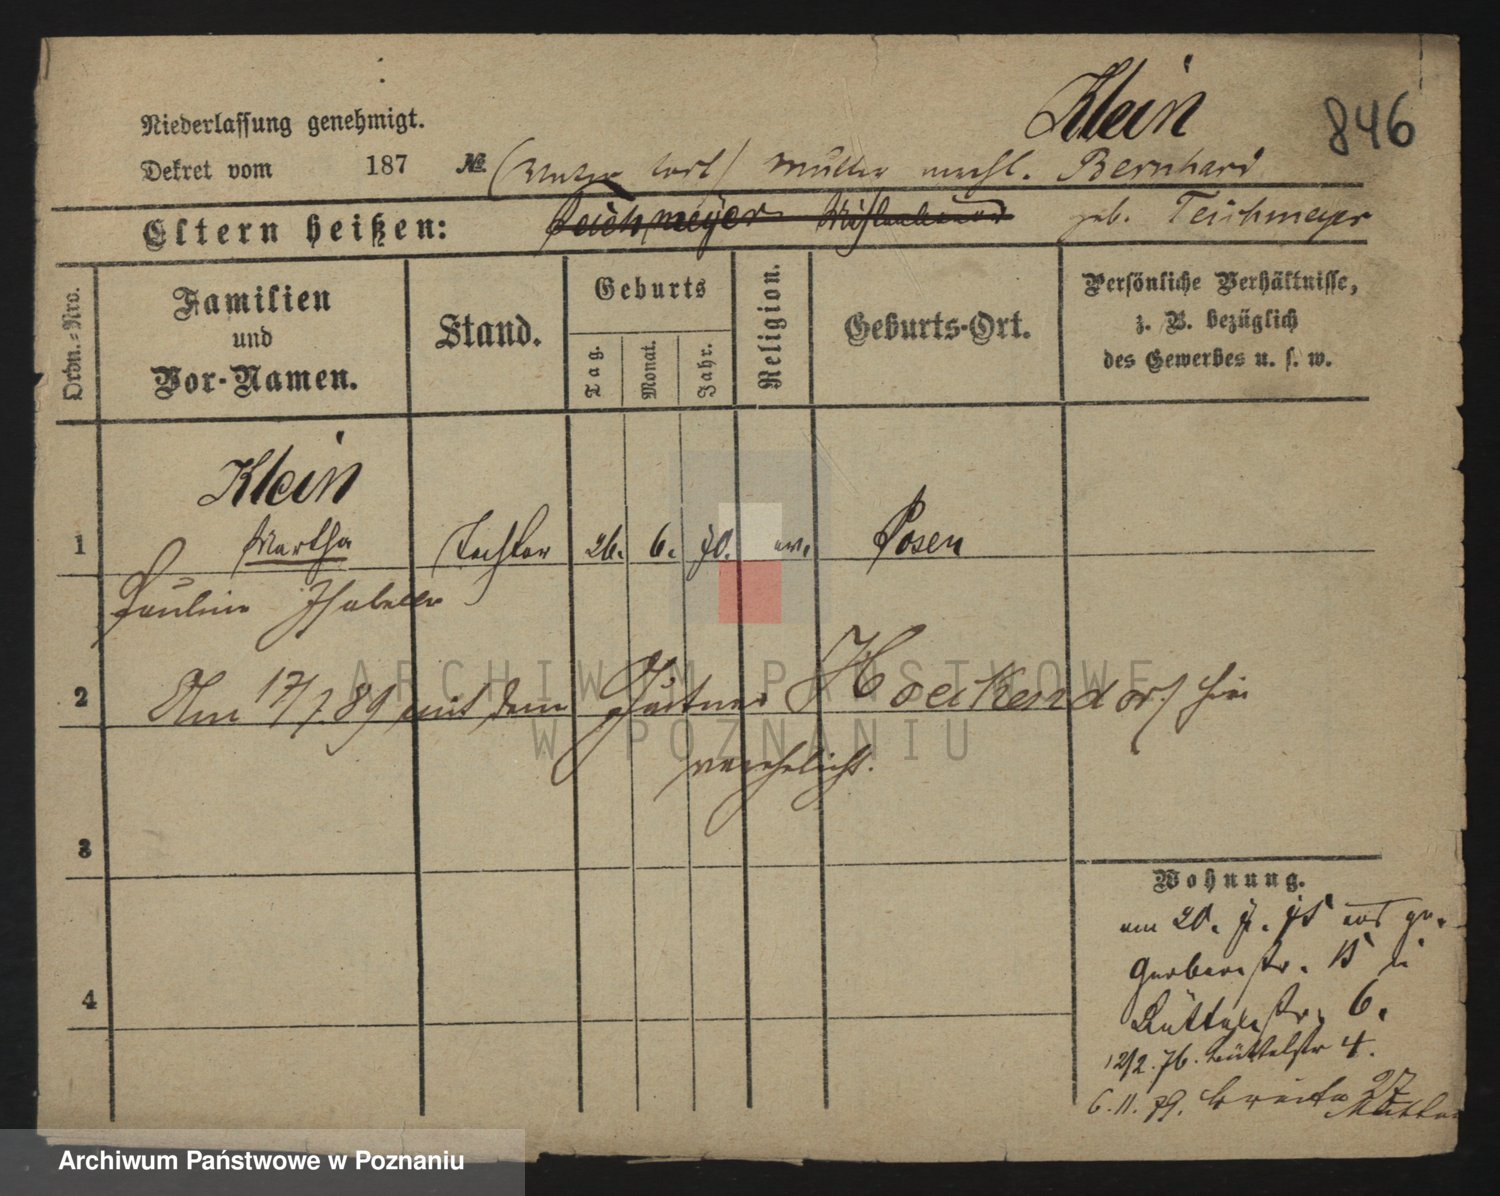 Klein
846
Niederlassung genehmigt.
Dekret vom 187 № (Vater todt) Mutter verehl. Bernhard
Eltern heißen: Teichmeyer geb. Teichmeyer
Ordn.-Nro.
Familien
und
Vor-Namen.
Stand.
Geburts
Tag.
Monat.
Jahr.
Religion.
Geburts-Ort.
Persönliche Verhältnisse,
z. B. bezüglich
des Gewerbes u. s. w.
Klein
1 Martha Tochter 26. 6. 70. ev. Posen
Pauline
2 Am 17/7 89 mit dem Gärtner Hoeckendorf hier
verehelicht.
3
4
Wohnung.
am 20. 7. 75 aus gr.
Gerberstr. 15 in
Büttelstr. 6.
12/2. 76. Büttelstr 4.
6. 11. 79. Breite 27
Mutter
ARCHIWUM PAŃSTWOWE
W POZNANIU
Archiwum Państwowe w Poznaniu